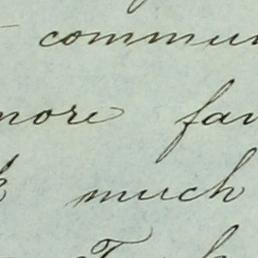 commun
more fav
much